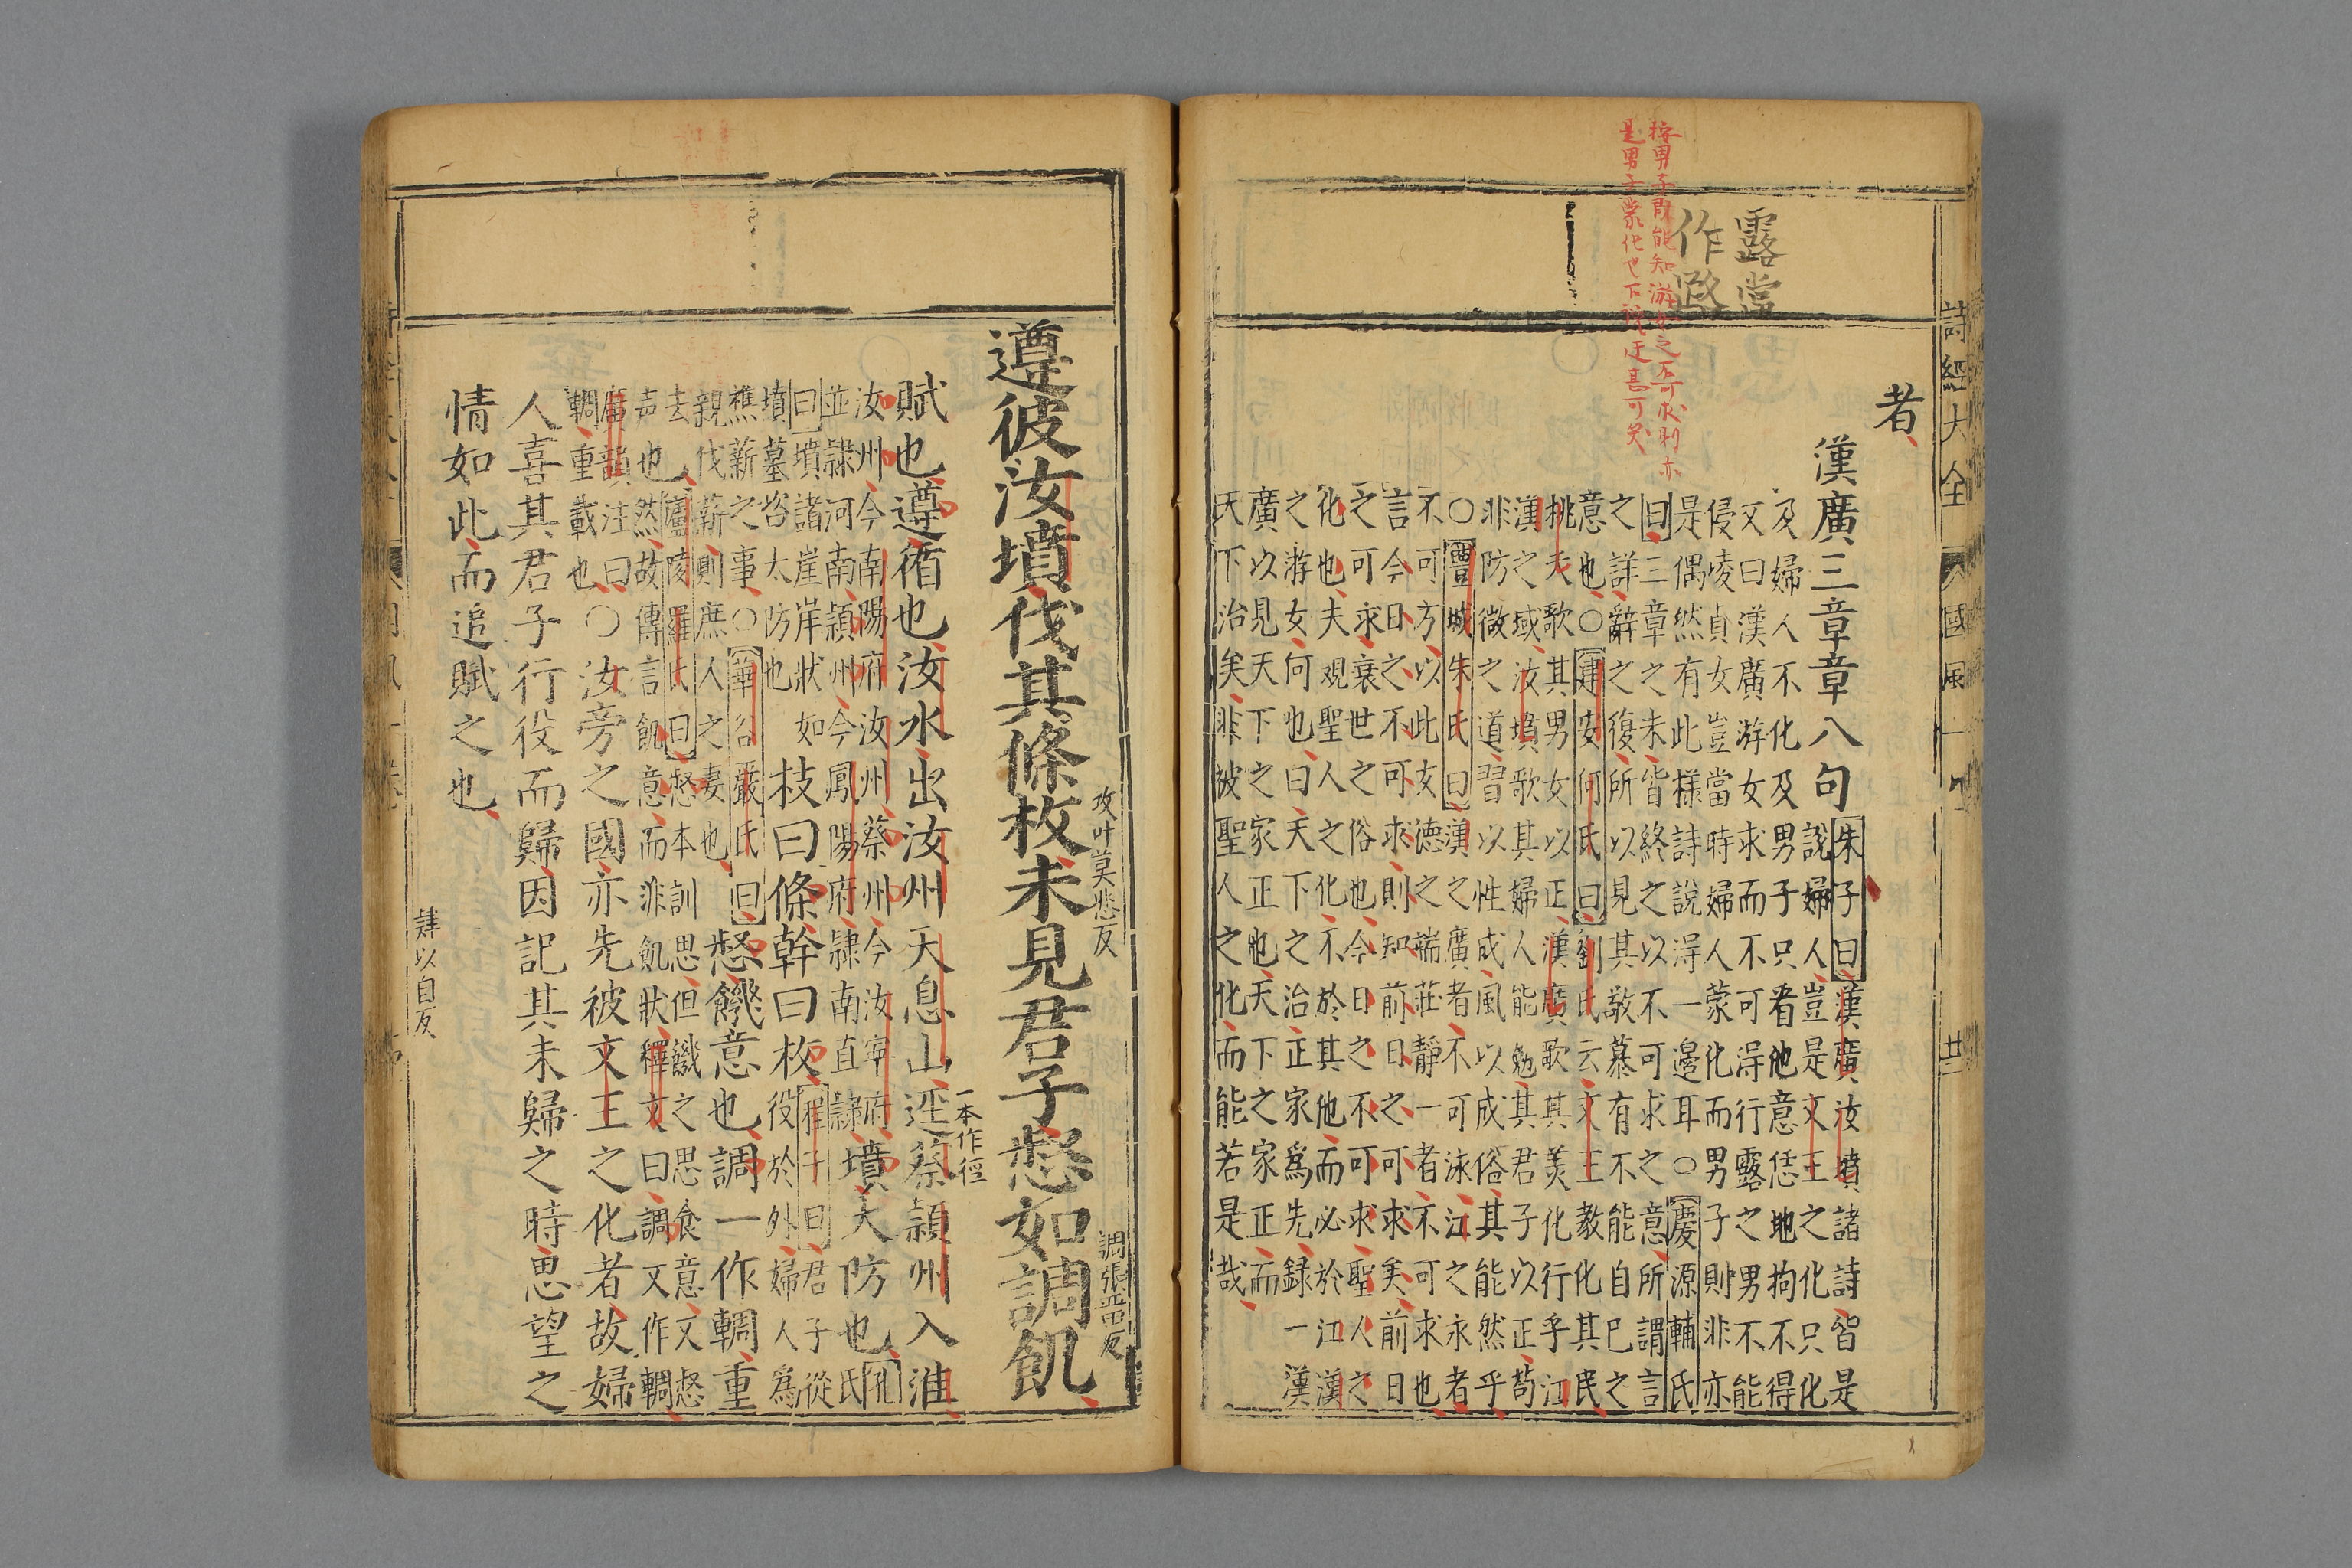 詩經大全 國風一 廿二
按男子既能知游女之不可求則亦
是男子蒙化也下說迂甚可笑
露當
作假
者
漢廣三章章八句
朱子曰漢廣汝墳諸詩皆是
說婦人豈是文王之化只化
及婦人不化及男子只看他意恁地拘不得
又曰漢廣游女求而不可得行露之男不能
侵凌貞女豈當時婦人蒙化而男子則非亦
是偶然有此樣詩說得一邊耳○慶源輔氏
曰三章之末皆終之以不可求之意所謂言
之詳辭之復所以見其敬慕有不能自已之
意也○建安何氏曰劉氏云文王教化其民
桃夭歌其男女以正漢廣歌其美化行乎江
漢之域汝墳歌其婦人能勉其君子以正苟
非防微之道習以性成風以成俗其能然乎
○豐城朱氏曰漢之廣者不可泳江之永者
不可方以此女德之端莊靜一者不可求也
言今日之不可求則知前日之可求矣前日
之可求衰世之俗也今日之不可求聖人之
化也夫觀聖人之化不於其他而必於江漢
之游女何也曰天下之治正家為先錄一漢
廣以見天下之家正也天下之家正而
天下治矣非被聖人之化而能若是哉
枚叶莫悲反 調張畱反
遵彼汝墳伐其條枚未見君子惄如調飢
一本作徑
賦也遵循也汝水出汝州天息山逕蔡潁州入淮
汝州今南陽府汝州蔡州今汝寧府
並隸河南潁州今鳳陽府隸南直隸
墳大防也
孔氏
曰墳諸崖岸狀如
墳墓名大防也
枝曰條幹曰枚
程子曰君子從
役於外婦人為
樵薪之事○華谷嚴氏曰
親伐薪則庶人之妻也
惄饑意也調一作輖重
去廬陵羅氏曰惄本訓思但饑之思食意又惄
声也然故傳言飢意而非飢狀釋文曰調又作輖
廣韻注曰
輖重載也
○汝旁之國亦先被文王之化者故婦
人喜其君子行役而歸因記其未歸之時思望之
情如此而追賦之也
肄以自反